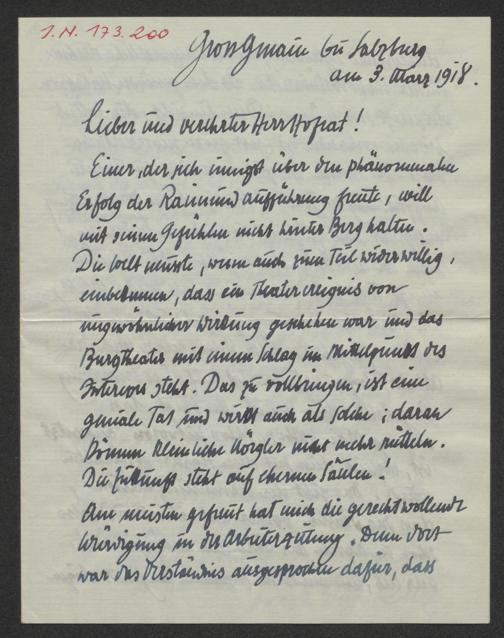 I.N. 173.200
Grossgmain bei Salzburg
am 3. März 1918.
Lieber und verehrter Herr Hofrat!
Einer, der sich innigst über den phänomenalen
Erfolg der Raimundaufführung freute, will
mit seinen Gefühlen nicht hinter Berg halten.
Die Welt musste, wenn auch zum Teil widerwillig,
einbekennen, dass ein Theaterereignis von
ungewöhnlicher Wirkung geschehen war und das
Burgtheater mit einem Schlag im Mittelpunkt des
Interesses steht. Das zu vollbringen, ist eine
geniale Tat und wirkt auch als solche; daran
können kleinliche Nörgler nicht mehr rütteln.
Die Zukunft steht auf ehernen Säulen!
Am meisten gefreut hat mich die gerecht wollende
Würdigung in der Arbeiterzeitung. Denn dort
war das Verständnis ausgesprochen dafür, dass